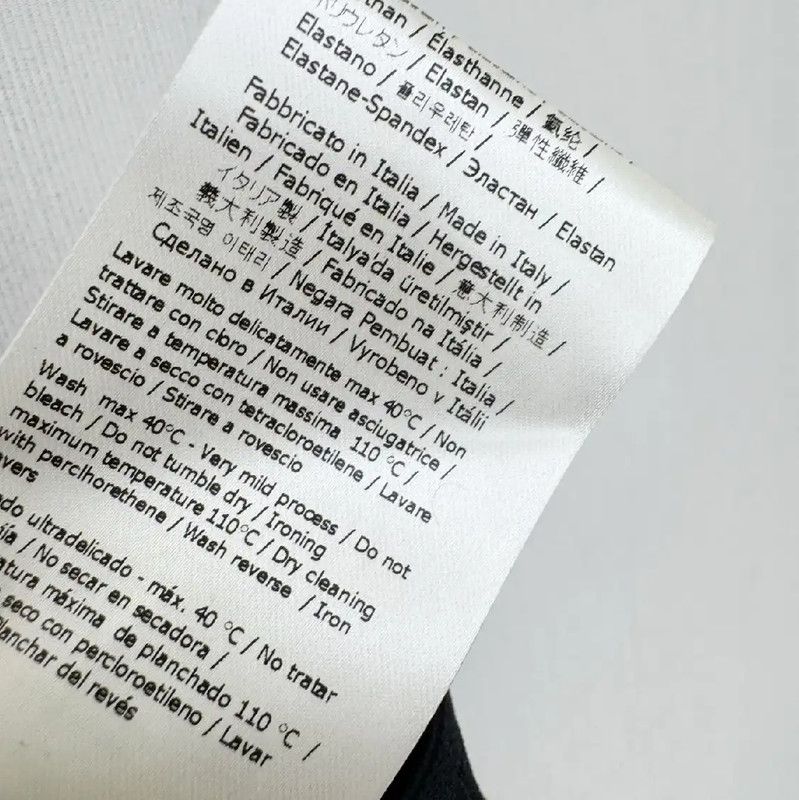 than / Élasthanne / 氨纶 /
ポリウレタン / Elastan / 彈性纖維 /
Elastano / 폴리우레탄 /
Elastane-Spandex / Эластан / Elastan
Fabbricato in Italia / Made in Italy /
Fabricado en Italia / Hergestellt in
Italien / Fabriqué en Italie / 意大利制造 /
イタリア製 / İtalya'da üretilmiştir /
義大利製造 / Fabricado na Itália /
제조국명 이태리 / Negara Pembuat : Italia /
Сделано в Италии / Vyrobeno v Itálii
Lavare molto delicatamente max 40°C / Non
trattare con cloro / Non usare asciugatrice /
Stirare a temperatura massima 110 °C /
Lavare a secco con tetracloroetilene / Lavare
a rovescio / Stirare a rovescio
Wash max 40°C - Very mild process / Do not
bleach / Do not tumble dry / Ironing
maximum temperature 110°C / Dry cleaning
with perclhorethene / Wash reverse / Iron
evers
ado ultradelicado - máx. 40 °C / No tratar
jía / No secar en secadora /
atura máxima de planchado 110 °C /
seco con percloroetileno / Lavar
lanchar del revés